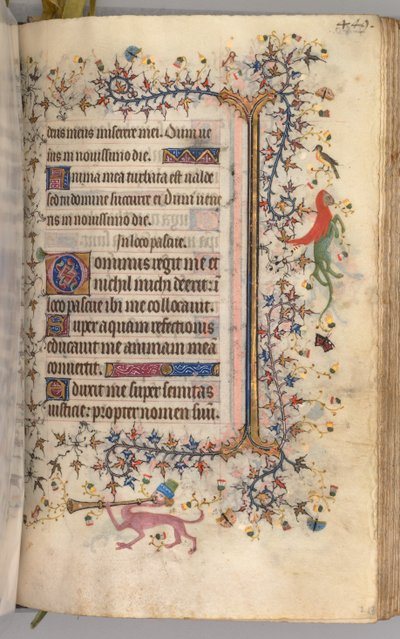 deus meus miserere mei. Dum ue
ris in nouissimo die.
Anima mea turbata est ualde
sed tu domine succurre ei Dum uene
ris in nouissimo die.
In loco pascue.
Dominus regit me et
nichil michi deerit: in
loco pascue ibi me collocauit.
Super aquam refectionis
educauit me animam meā
conuertit.
Eduxit me super semitas
iusticie: propter nomen suū.